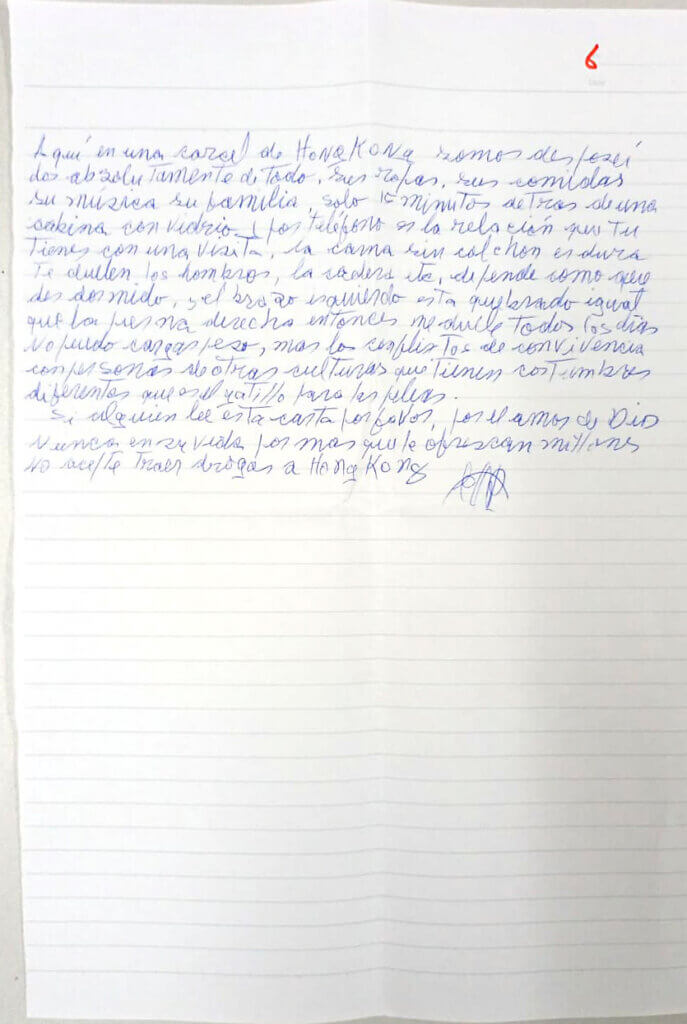 6
Aquí en una carcel de Hong Kong somos desposei
dos absolutamente de todo, sus ropas, sus comidas
su música su familia, solo 15 minutos detras de una
cabina con vidrio y por teléfono es la relación que tu
tienes con una visita, la cama sin colchon es dura
te duelen los hombros, la cadera etc, depende como que
des dormido, y el brazo izquierdo esta quebrado igual
que la pierna derecha entonces me duele todos los días
no puedo cargar peso, mas los conflictos de convivencia
con personas de otras culturas que tienen costumbres
diferentes que es el gatillo para las peleas.
Si alguien lee esta carta por favor, por el amor de Dios
nunca en su vida por mas que le ofrescan millones
no acepte traer drogas a Hong Kong